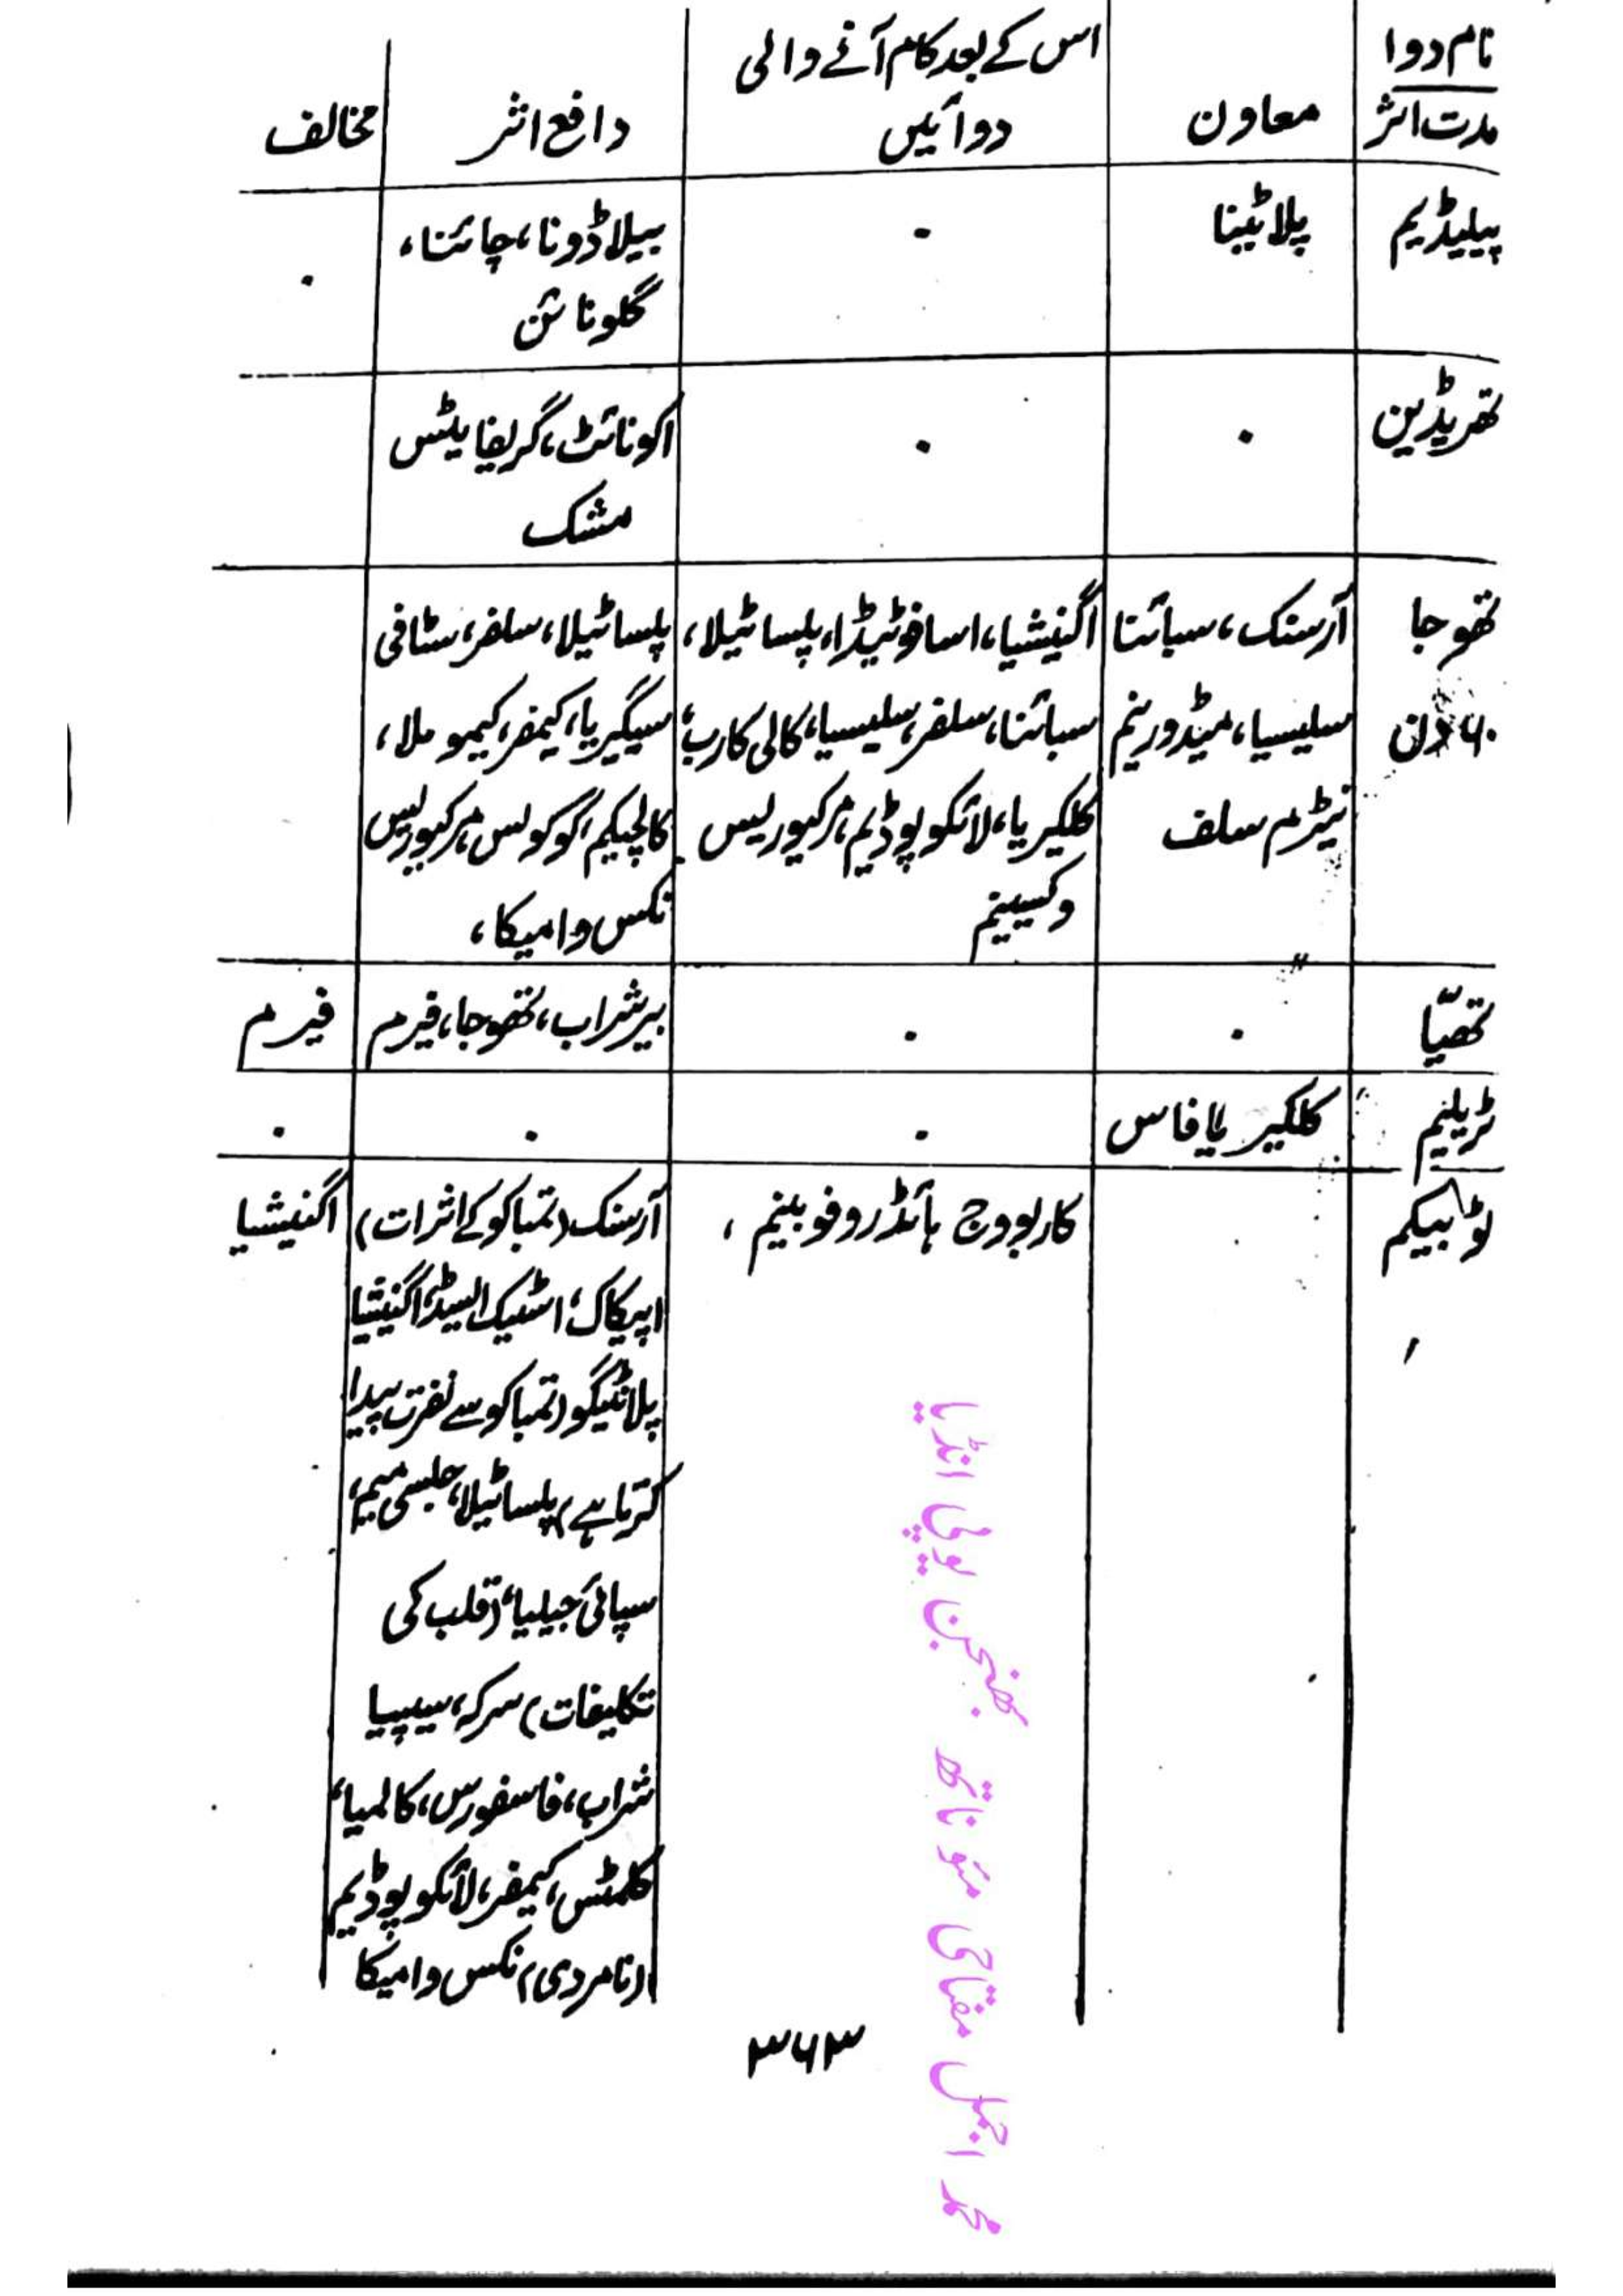 نام دوا
مدت اثر
معاون
اس کے بعد کام آنے والی
دوائیں
دافع اثر
مخالف
پیلیڈیم
پلاٹینا
۔
بیلاڈونا، چائنا،
گلونائن
۔
تھریڈین
۔
۔
اکونائٹ، گریفائٹس
مشک
تھوجا
۶۰ دن
آرسنک، سبائنا
سلیسیا، میڈورینم
نیٹرم سلف
اگنیشیا، اسافوٹیڈا، پلساٹیلا،
سبائنا، سلفر، سلیسیا، کالی کارب،
کلکیریا، لائکوپوڈیم، مرکیوریس
وکسینم
پلساٹیلا، سلفر، سٹافی
سیگیریا، کیمفر، کیموملا،
کالچیکم، کوکولس، مرکیوریس
نکس وامیکا،
تھیّا
۔
۔
بیر شراب، تھوجا، فیرم
فیرم
ٹریلیم
کلکیریا فاس
۔
۔
۔
ٹوبیکم
کاربووج ہائڈروفوبینم،
آرسنک (تمباکو کے اثرات)
اپیکاک، اسٹیک ایسڈ، اگنیشیا
پلانٹیگو (تمباکو سے نفرت پیدا
کرتا ہے) پلساٹیلا، جلسی میم،
سپائی جیلیا، (قلب کی
تکلیفات) سرکہ، سیپیا
شراب، فاسفورس، کالمیا،
کلمٹس، کیمفر، لائکوپوڈیم
(نامردی) نکس وامیکا
اگنیشیا
محمد اجمل مفتاحی مئو ناتھ بھنجن یوپی انڈیا
۳۶۳